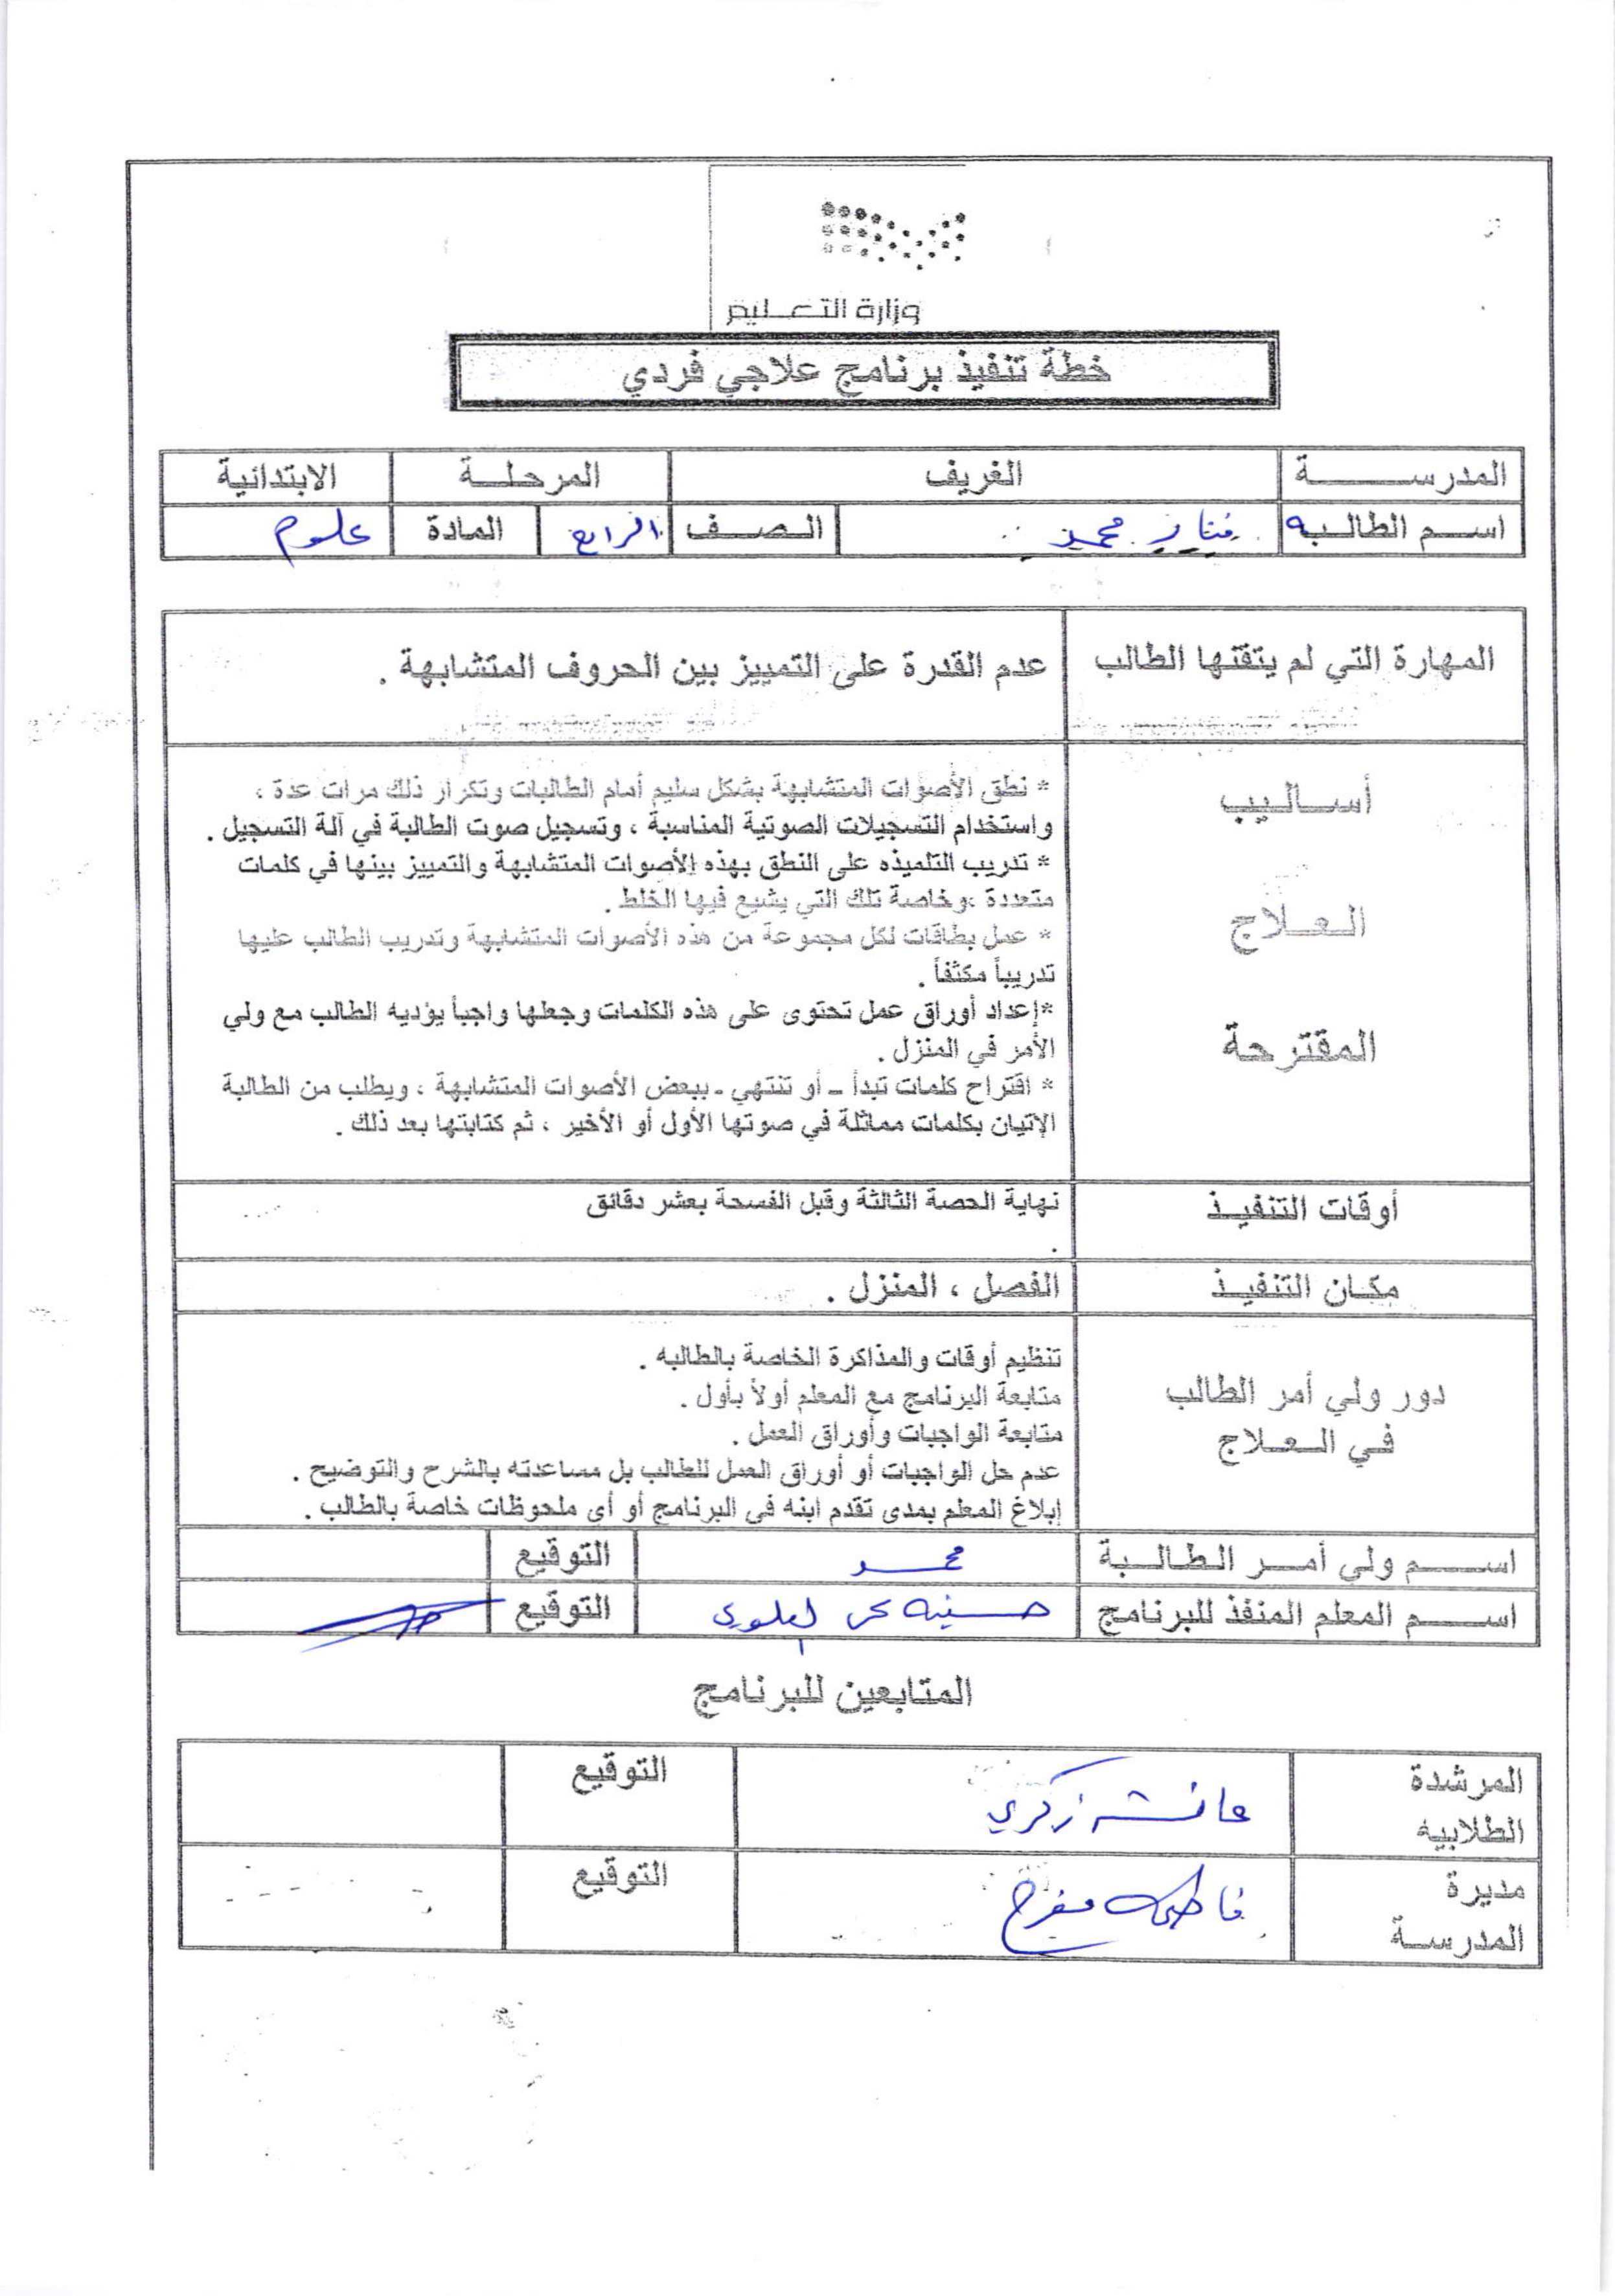 وزارة التعليم
خطة تنفيذ برنامج علاجي فردي
المدرسة الغريف المرحلة الابتدائية
اسم الطالبه محمد الصف الرابع المادة علوم
المهارة التي لم يتقنها الطالب عدم القدرة على التمييز بين الحروف المتشابهة .
أساليب
العلاج
المقترحة
* نطق الأصوات المتشابهة بشكل سليم أمام الطالبات وتكرار ذلك مرات عدة ،
واستخدام التسجيلات الصوتية المناسبة ، وتسجيل صوت الطالبة في آلة التسجيل .
* تدريب التلميذه على النطق بهذه الأصوات المتشابهة والتمييز بينها في كلمات
متعددة ،وخاصة تلك التي يشيع فيها الخلط .
* عمل بطاقات لكل مجموعة من هذه الأصوات المتشابهة وتدريب الطالب عليها
تدريباً مكثفاً .
*إعداد أوراق عمل تحتوى على هذه الكلمات وجعلها واجباً يؤديه الطالب مع ولي
الأمر في المنزل .
* اقتراح كلمات تبدأ – أو تنتهي - ببعض الأصوات المتشابهة ، ويطلب من الطالبة
الإتيان بكلمات مماثلة في صوتها الأول أو الأخير ، ثم كتابتها بعد ذلك .
أوقات التنفيذ نهاية الحصة الثالثة وقبل الفسحة بعشر دقائق
.
مكان التنفيذ الفصل ، المنزل .
دور ولي أمر الطالب
في العلاج
تنظيم أوقات والمذاكرة الخاصة بالطالبه .
متابعة البرنامج مع المعلم أولاً بأول .
متابعة الواجبات وأوراق العمل .
عدم حل الواجبات أو أوراق العمل للطالب بل مساعدته بالشرح والتوضيح .
إبلاغ المعلم بمدى تقدم ابنه في البرنامج أو أى ملحوظات خاصة بالطالب .
اسم ولي أمر الطالبة محمد التوقيع
اسم المعلم المنفذ للبرنامج حسنيه العلوي التوقيع
المتابعين للبرنامج
المرشدة
الطلابيه
عائشه زكري
التوقيع
مديرة
المدرسة
فاطمه مفرح
التوقيع